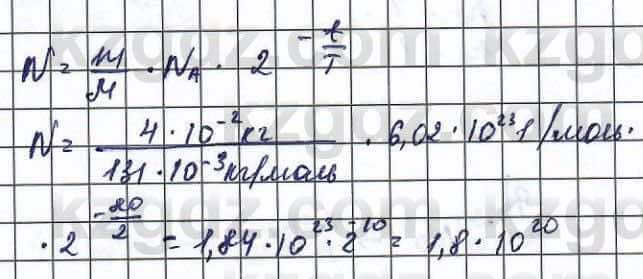 N = m/M · N_A · 2^(-t/T)
N = 4·10^(-2) кг / 131·10^(-3) кг/моль · 6,02·10^23 1/моль ·
· 2^(-20/2) = 1,84·10^23 · 2^(-10) = 1,8·10^20